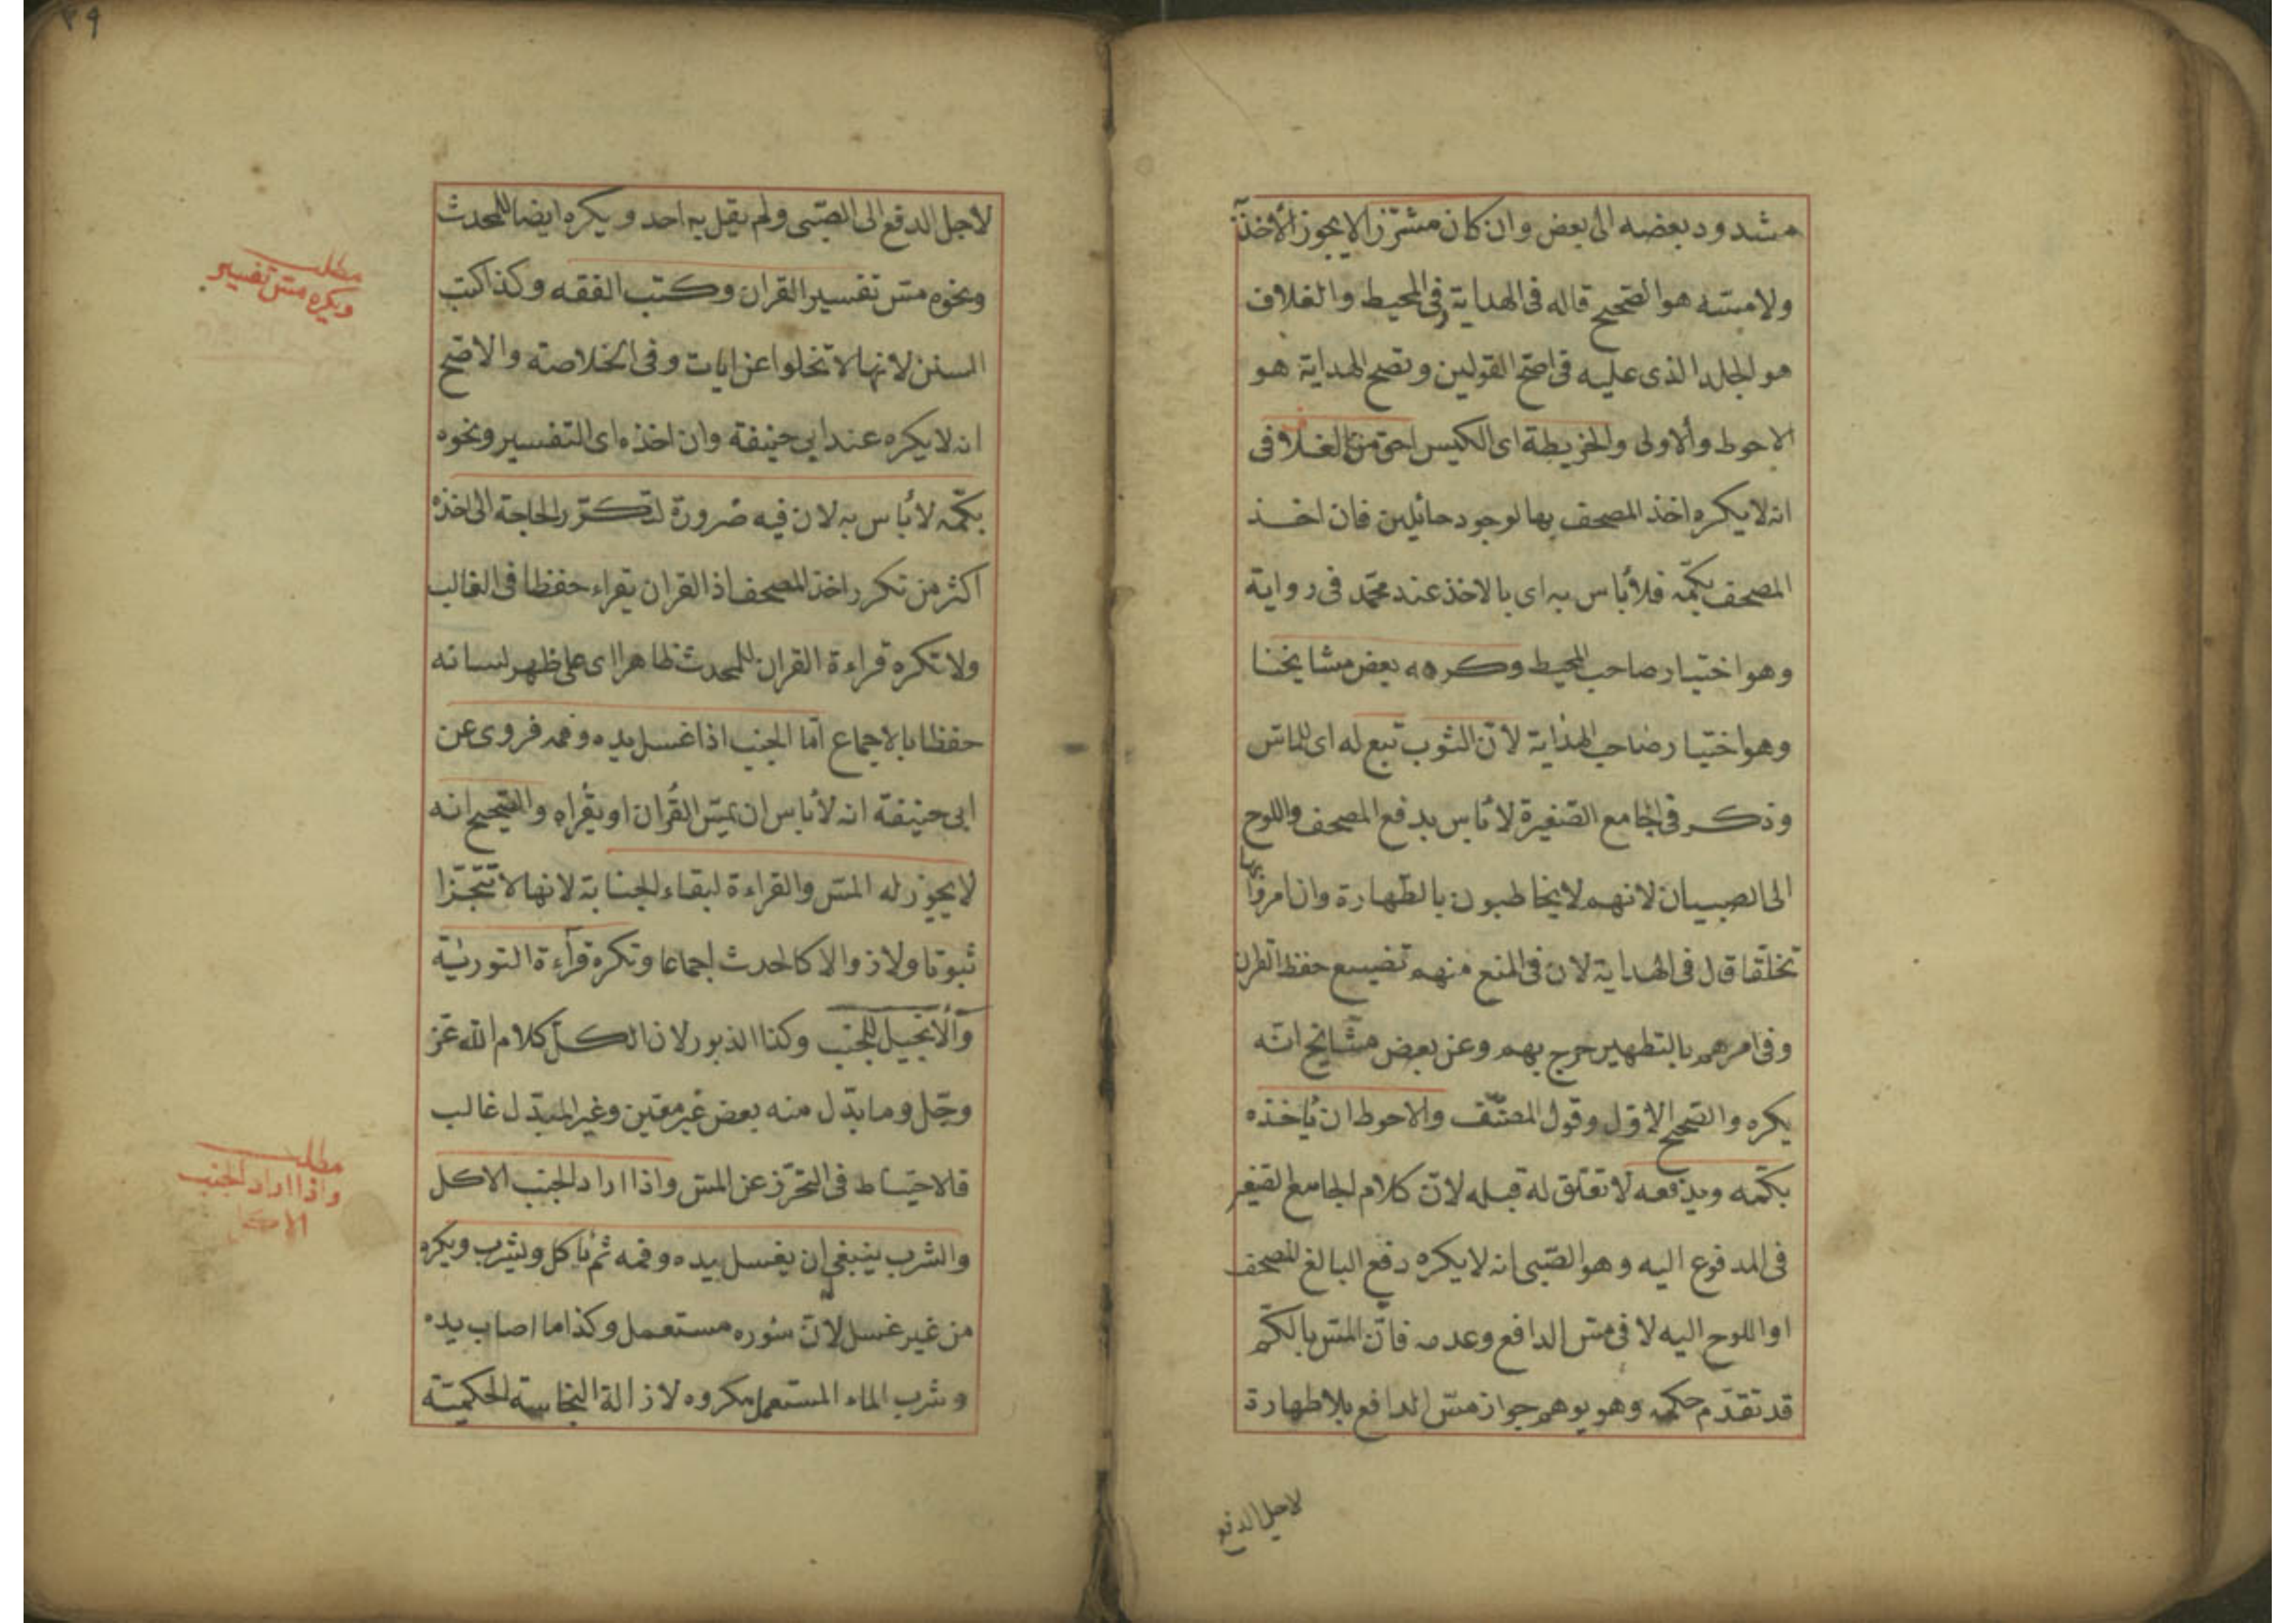 مشدود بعضه الى بعض وان كان مشرّزا لا يجوز الأخذ
ولا مسّه هو الصحيح قاله فى الهداية وفى المحيط والغلاف
هو الجلد الذى عليه فى اصحّ القولين وتصحح الهداية هو
الاحوط والاولى والخريطة اى الكيس احق من الغلاف فى
انه لا يكره اخذ المصحف بها لوجود حائلين فان اخذ
المصحف بكمّه فلا بأس به اى بالاخذ عند محمّد فى رواية
وهو اختيار صاحب المحيط وكرهه بعض مشايخنا
وهو اختيار صاحب الهداية لانّ الثوب تبع له اى للماسّ
وذكر فى الجامع الصّغيرة لا بأس بدفع المصحف واللوح
الى الصبيان لانهم لا يخاطبون بالطّهارة وان امروا
تخلقا قال فى الهداية لان فى المنع منهم تضييع حفظ القران
وفى امرهم بالتطهير حرج بهم وعن بعض مشايخ انّه
يكره والصّحيح الاوّل وقول المصنّف والاحوط ان يأخذه
بكمّه ويدفعه لا تعلّق له قبله لانّ كلام الجامع الصّغير
فى المدفوع اليه وهو الصّبى انه لا يكره دفع البالغ المصحف
او اللوح اليه لا فى مسّ الدافع وعدمه فانّ المسّ بالكمّ
قد تقدّم حكمه وهو يوهم جواز مسّ الدافع بلا طهارة
لاجل الدفع
٣٩
لاجل الدفع الى الصّبى ولم يقل به احد ويكره ايضا للمحدث
ونحوه مسّ تفسير القران وكتب الفقه وكذا كتب
السنن لانها لا تخلوا عن ايات وفى الخلاصة والاصح
انه لا يكره عند ابى حنيفة وان اخذه اى التفسير ونحوه
بكمّه لا بأس به لان فيه ضرورة لتكرّر الحاجة الى اخذه
اكثر من تكرر اخذ المصحف اذ القران يقراء حفظا فى الغالب
ولا تكره قراءة القران للمحدث ظاهرا اى على ظهر لسانه
حفظا بالاجماع امّا الجنب اذا غسل يده وفمه فروى عن
ابى حنيفة انه لا بأس ان يمسّ القُران او يقُراه والصّحيح انه
لا يجوز له المسّ والقراءة لبقاء الجنابة لانها لا تتجّزا
ثبوتا ولا زوالا كالحدث اجماعا وتكره قرآءة التوريٰة
والانجيل للجنب وكذا الذبور لان الكلّ كلام الله عزّ
وجّل وما بدّل منه بعض غير معّين وغير المبدّل غالب
فالاحتياط فى التحرّز عن المسّ واذا اراد الجنب الاكل
والشرب ينبغى ان يغسل يده وفمه ثمّ يأكل ويشرب ويكره
من غير غسل لانّ سُوره مستعمل وكذا ما اصاب يده
وشرب الماء المستعمل مكروه لازالة النجاسة الحكميّة
مطلب
ويكره مسّ تفسير
مطلب
واذا اراد الجنب
الاكل